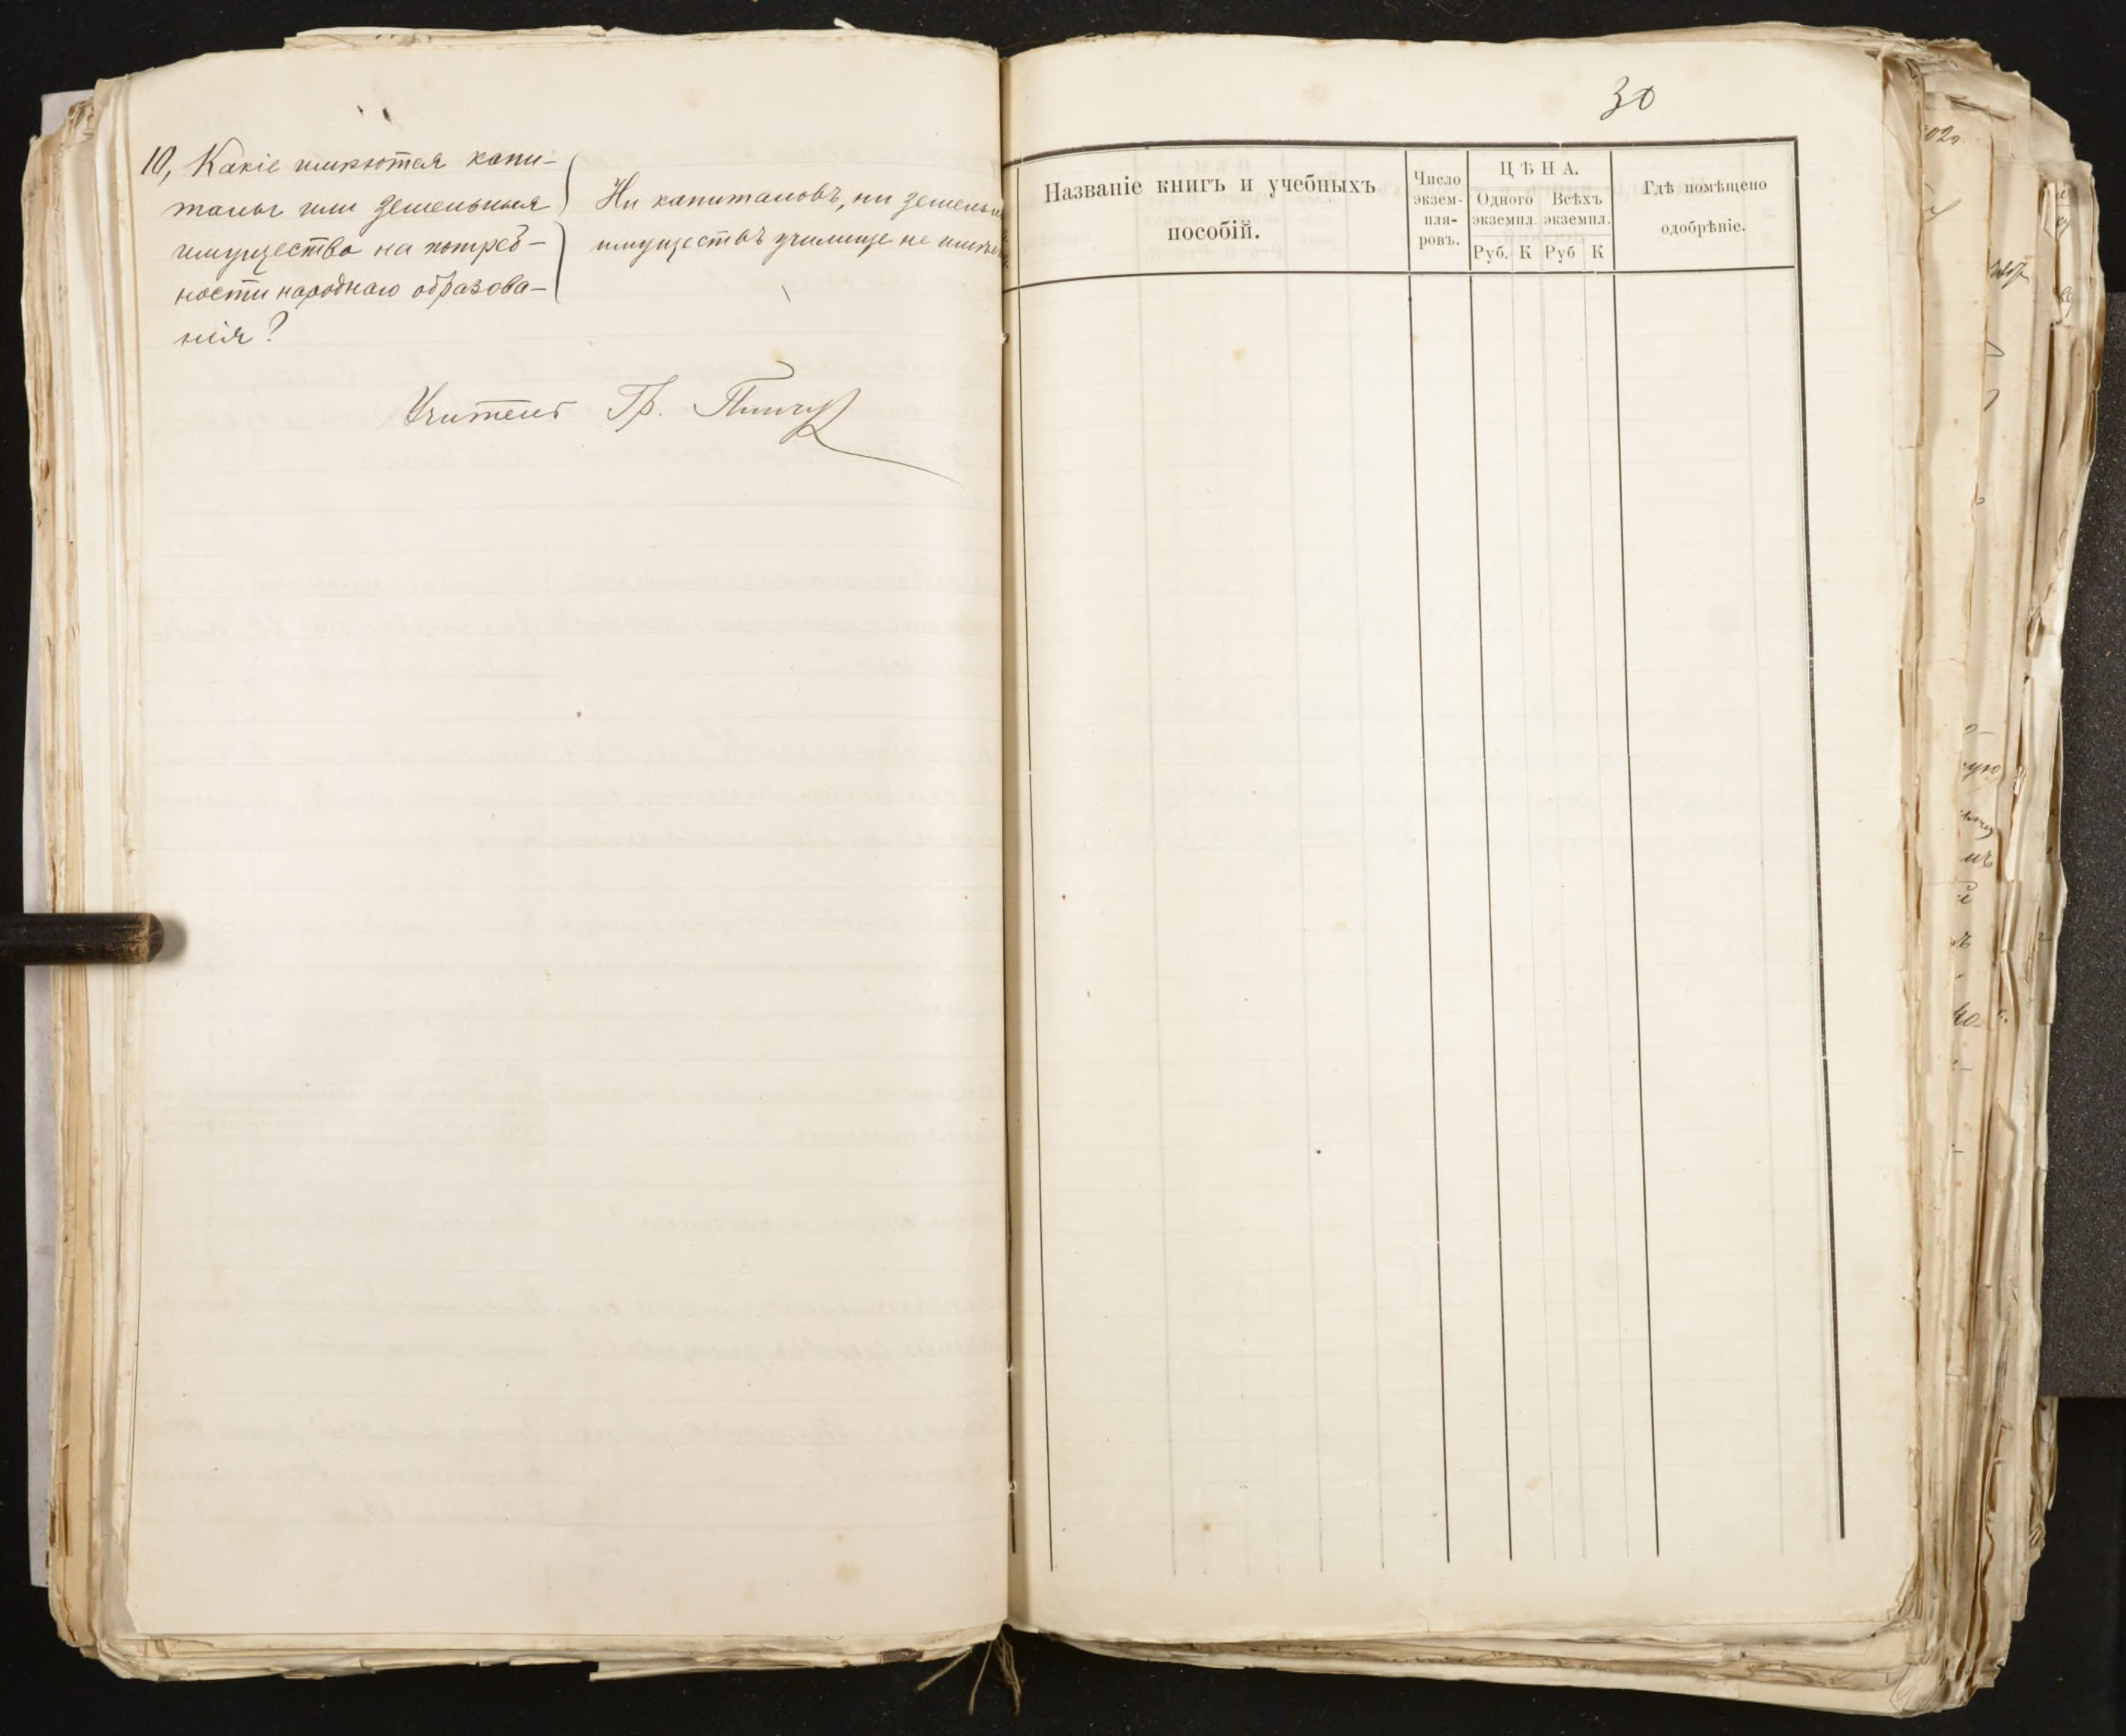 10, Какіе имѣются капи-
талы или земельныя
имущества на потреб-
ности народнаго образова-
нія?
Ни капиталовъ, ни земельн
имуществъ училище не имѣе
Учитель Гр.
30
Названіе книгъ и учебныхъ
пособій.
Число
экзем-
пля-
ровъ.
ЦѢНА.
Одного
экземпл.
Всѣхъ
экземпл.
Руб. К Руб К
Гдѣ помѣщено
одобрѣніе.